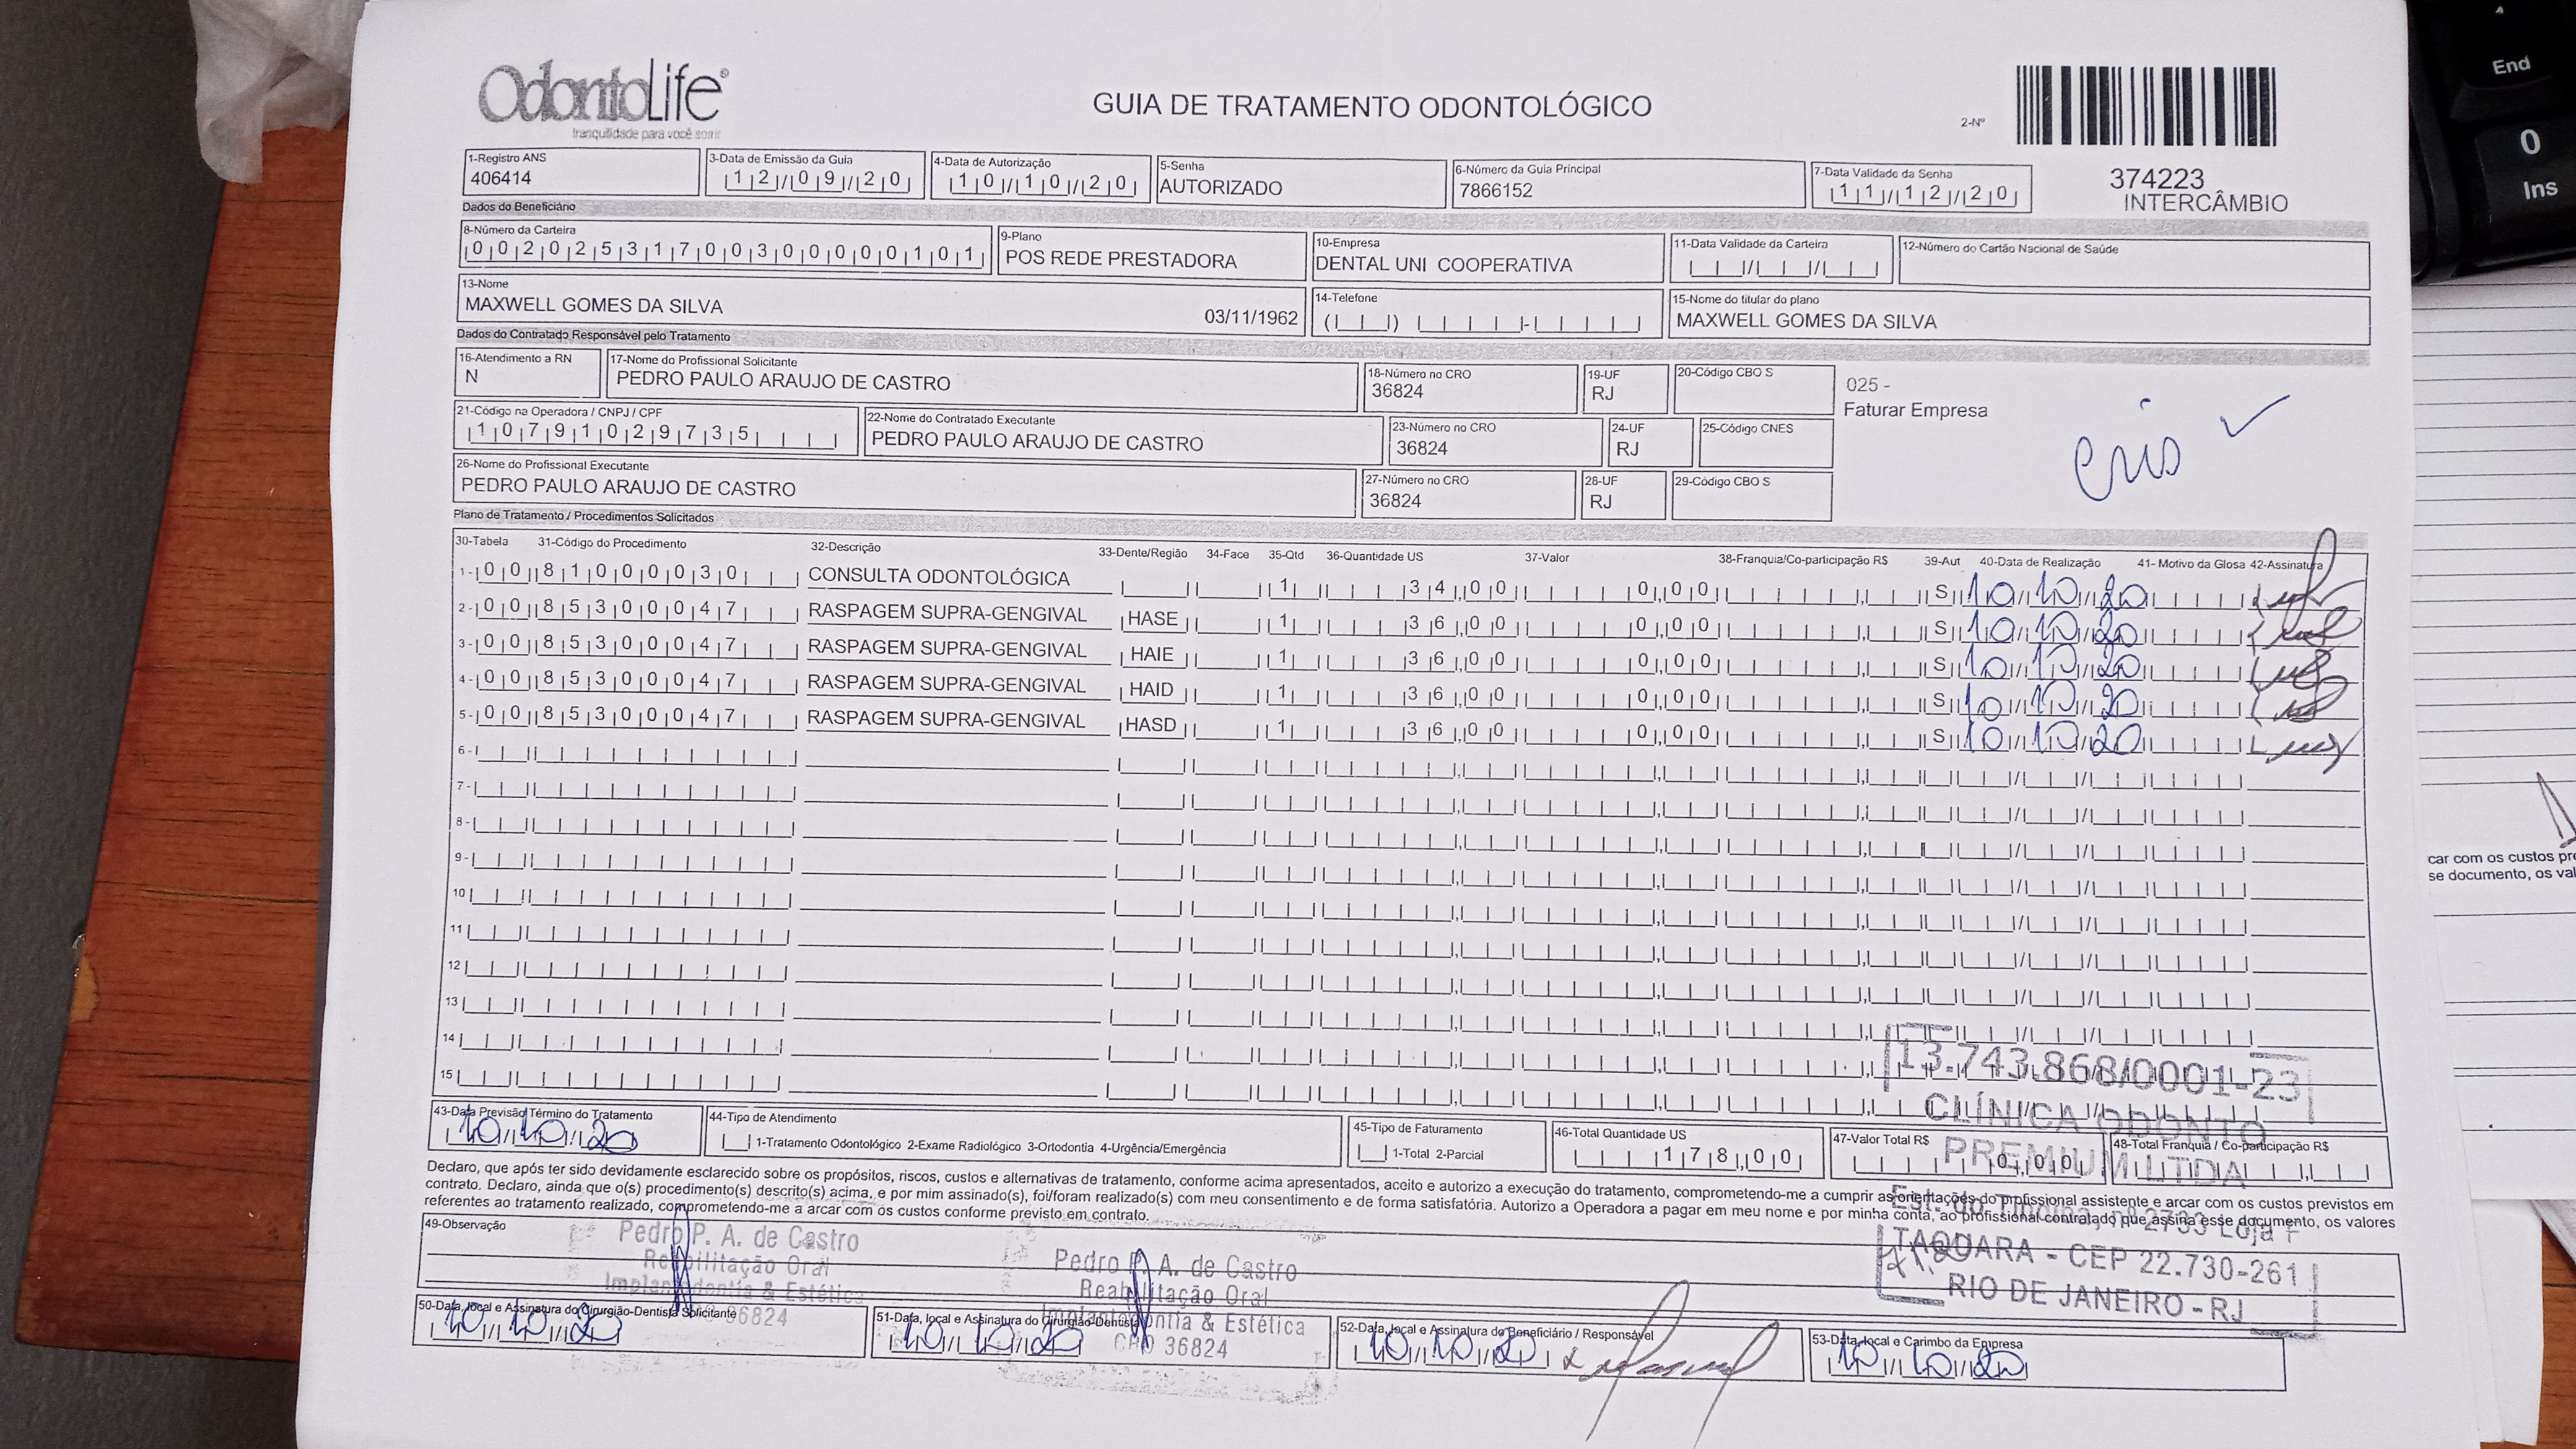 OdontoLife®
tranquilidade para você sorrir
GUIA DE TRATAMENTO ODONTOLÓGICO
2-Nº
374223
INTERCÂMBIO
1-Registro ANS
406414
3-Data de Emissão da Guia
12/09/20
4-Data de Autorização
10/10/20
5-Senha
AUTORIZADO
6-Número da Guia Principal
7866152
7-Data Validade da Senha
11/12/20
Dados do Beneficiário
8-Número da Carteira
00202531700300000101
9-Plano
POS REDE PRESTADORA
10-Empresa
DENTAL UNI COOPERATIVA
11-Data Validade da Carteira
12-Número do Cartão Nacional de Saúde
13-Nome
MAXWELL GOMES DA SILVA 03/11/1962
14-Telefone
15-Nome do titular do plano
MAXWELL GOMES DA SILVA
Dados do Contratado Responsável pelo Tratamento
16-Atendimento a RN
N
17-Nome do Profissional Solicitante
PEDRO PAULO ARAUJO DE CASTRO
18-Número no CRO
36824
19-UF
RJ
20-Código CBO S
025 -
Faturar Empresa
21-Código na Operadora / CNPJ / CPF
10791029735
22-Nome do Contratado Executante
PEDRO PAULO ARAUJO DE CASTRO
23-Número no CRO
36824
24-UF
RJ
25-Código CNES
cris
26-Nome do Profissional Executante
PEDRO PAULO ARAUJO DE CASTRO
27-Número no CRO
36824
28-UF
RJ
29-Código CBO S
Plano de Tratamento / Procedimentos Solicitados
30-Tabela 31-Código do Procedimento 32-Descrição 33-Dente/Região 34-Face 35-Qtd 36-Quantidade US 37-Valor 38-Franquia/Co-participação R$ 39-Aut 40-Data de Realização 41- Motivo da Glosa 42-Assinatura
1- 00 81000030 CONSULTA ODONTOLÓGICA 1 34,00 0,00 S 10/10/20
2- 00 85300047 RASPAGEM SUPRA-GENGIVAL HASE 1 36,00 0,00 S 10/10/20
3- 00 85300047 RASPAGEM SUPRA-GENGIVAL HAIE 1 36,00 0,00 S 10/10/20
4- 00 85300047 RASPAGEM SUPRA-GENGIVAL HAID 1 36,00 0,00 S 10/10/20
5- 00 85300047 RASPAGEM SUPRA-GENGIVAL HASD 1 36,00 0,00 S 10/10/20
6-
7-
8-
9-
10
11
12
13
14
15
13.743.868/0001-23
CLÍNICA ODONTO
PREMIUM LTDA
Est. do Tindiba, nº 2733 Loja F
TAQUARA - CEP 22.730-261
RIO DE JANEIRO - RJ
43-Data Previsão Término do Tratamento
10/10/20
44-Tipo de Atendimento
1-Tratamento Odontológico 2-Exame Radiológico 3-Ortodontia 4-Urgência/Emergência
45-Tipo de Faturamento
1-Total 2-Parcial
46-Total Quantidade US
178,00
47-Valor Total R$
0,00
48-Total Franquia / Co-participação R$
Declaro, que após ter sido devidamente esclarecido sobre os propósitos, riscos, custos e alternativas de tratamento, conforme acima apresentados, aceito e autorizo a execução do tratamento, comprometendo-me a cumprir as orientações do profissional assistente e arcar com os custos previstos em
contrato. Declaro, ainda que o(s) procedimento(s) descrito(s) acima, e por mim assinado(s), foi/foram realizado(s) com meu consentimento e de forma satisfatória. Autorizo a Operadora a pagar em meu nome e por minha conta, ao profissional contratado que assina esse documento, os valores
referentes ao tratamento realizado, comprometendo-me a arcar com os custos conforme previsto em contrato.
49-Observação
Pedro P. A. de Castro
Reabilitação Oral
Implantodontia & Estética
36824
Pedro P. A. de Castro
Reabilitação Oral
Implantodontia & Estética
CRO 36824
50-Data, local e Assinatura do Cirurgião-Dentista Solicitante
10/10/20
51-Data, local e Assinatura do Cirurgião-Dentista
10/10/20
52-Data, local e Assinatura do Beneficiário / Responsável
10/10/20
53-Data, local e Carimbo da Empresa
10/10/20
End
0
Ins
car com os custos pre
se documento, os val